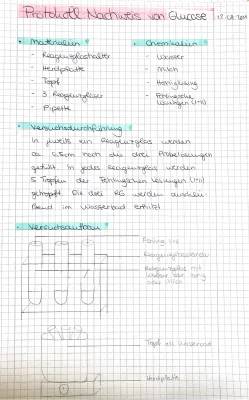 Protokoll Nachweis von Glucose
• Materialien •
- Reagenzglashalter
- Herdplatte
- Topf
- 3 Reagenzgläser
- Pipette
• Chemikalien •
- Wasser
- Milch
- Honiglösung
- Fehlingsche Lösungen (I+II)
• Versuchsdurchführung •
In jeweils ein Reagenzglas werden
ca. 5cm hoch die drei Probelösungen
gefüllt. In jedes Reagenzglas werden
5 Tropfen der Fehlingschen Lösungen (I+II)
getropft. Die drei RG werden anschlie-
ßend im Wasserbad erhitzt
• Versuchsaufbau •
Fehling I+II
Reagenzglas mit
Topf als Wasserbad
Herdplatte